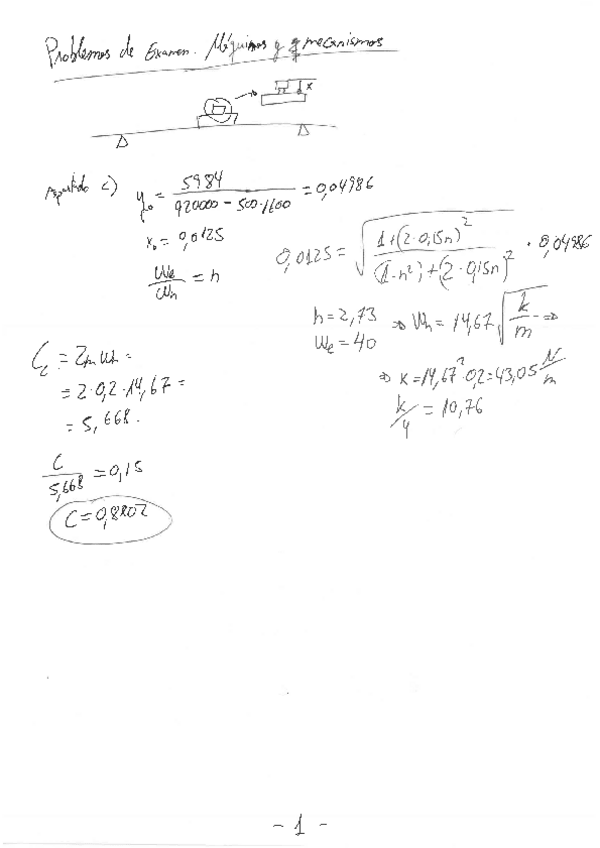 Problemas de Examen. Máquinas y mecanismos
x
Apartado c) y₀ = 5984 / (920000 - 500·1600) = 0,04986
x₀ = 0,0125
We / Wn = h
0,0125 = √((1+(2·0,15h)²) / ((1-h²)²+(2·0,15h)²)) · 0,04986
h = 2,73 ⇒ Wn = 14,67 √(k/m) ⇒
We = 40
⇒ K = 14,67²·0,2 = 43,05 N/m
k/4 = 10,76
Cc = 2m Wn =
= 2·0,2·14,67 =
= 5,668.
C / 5,668 = 0,15
C = 0,8802
- 1 -